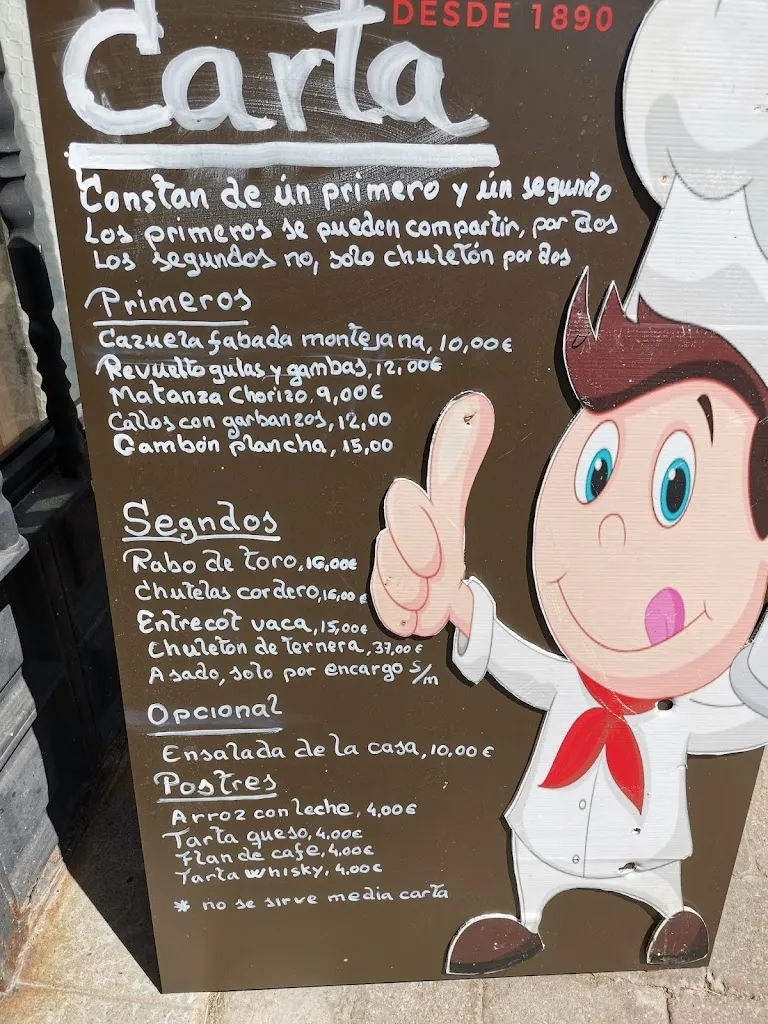 DESDE 1890
Carta
Constan de ún primero y ún segundo
Los primeros se pueden compartir, por dos
Los segundos no, solo chuletón por dos
Primeros
Cazuela fabada montejana, 10,00€
Revuelto gulas y gambas, 12,00€
Matanza Chorizo, 9,00€
Callos con garbanzos, 12,00
Gambón plancha, 15,00
Segndos
Rabo de toro, 16,00€
Chutelas cordero, 16,00€
Entrecot vaca, 15,00€
Chuleton de ternera, 37,00€
Asado, solo por encargo s/m
Opcional
Ensalada de la casa, 10,00€
Postres
Arroz con leche, 4.00€
Tarta queso, 4.00€
Flan de cafe, 4.00€
Tarta whisky, 4.00€
* no se sirve media carta